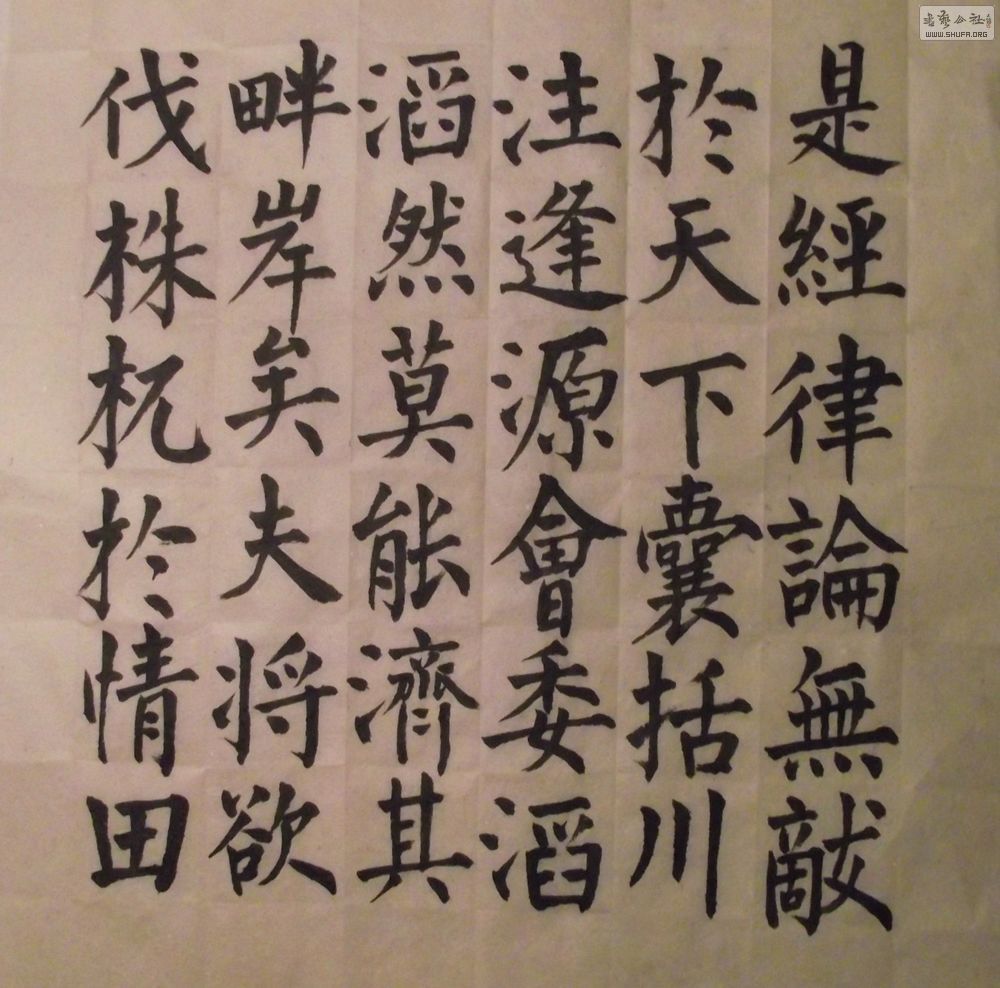 是經律論無敵
於天下囊括川
注逢源會委滔
滔然莫能濟其
畔岸矣夫將欲
伐株杌於情田
書藝公社
WWW.SHUFA.ORG